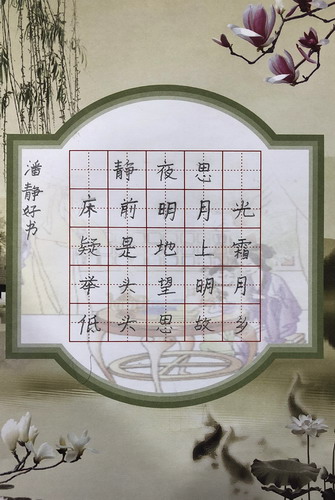 静夜思
床前明月光
疑是地上霜
举头望明月
低头思故乡
潘静好书